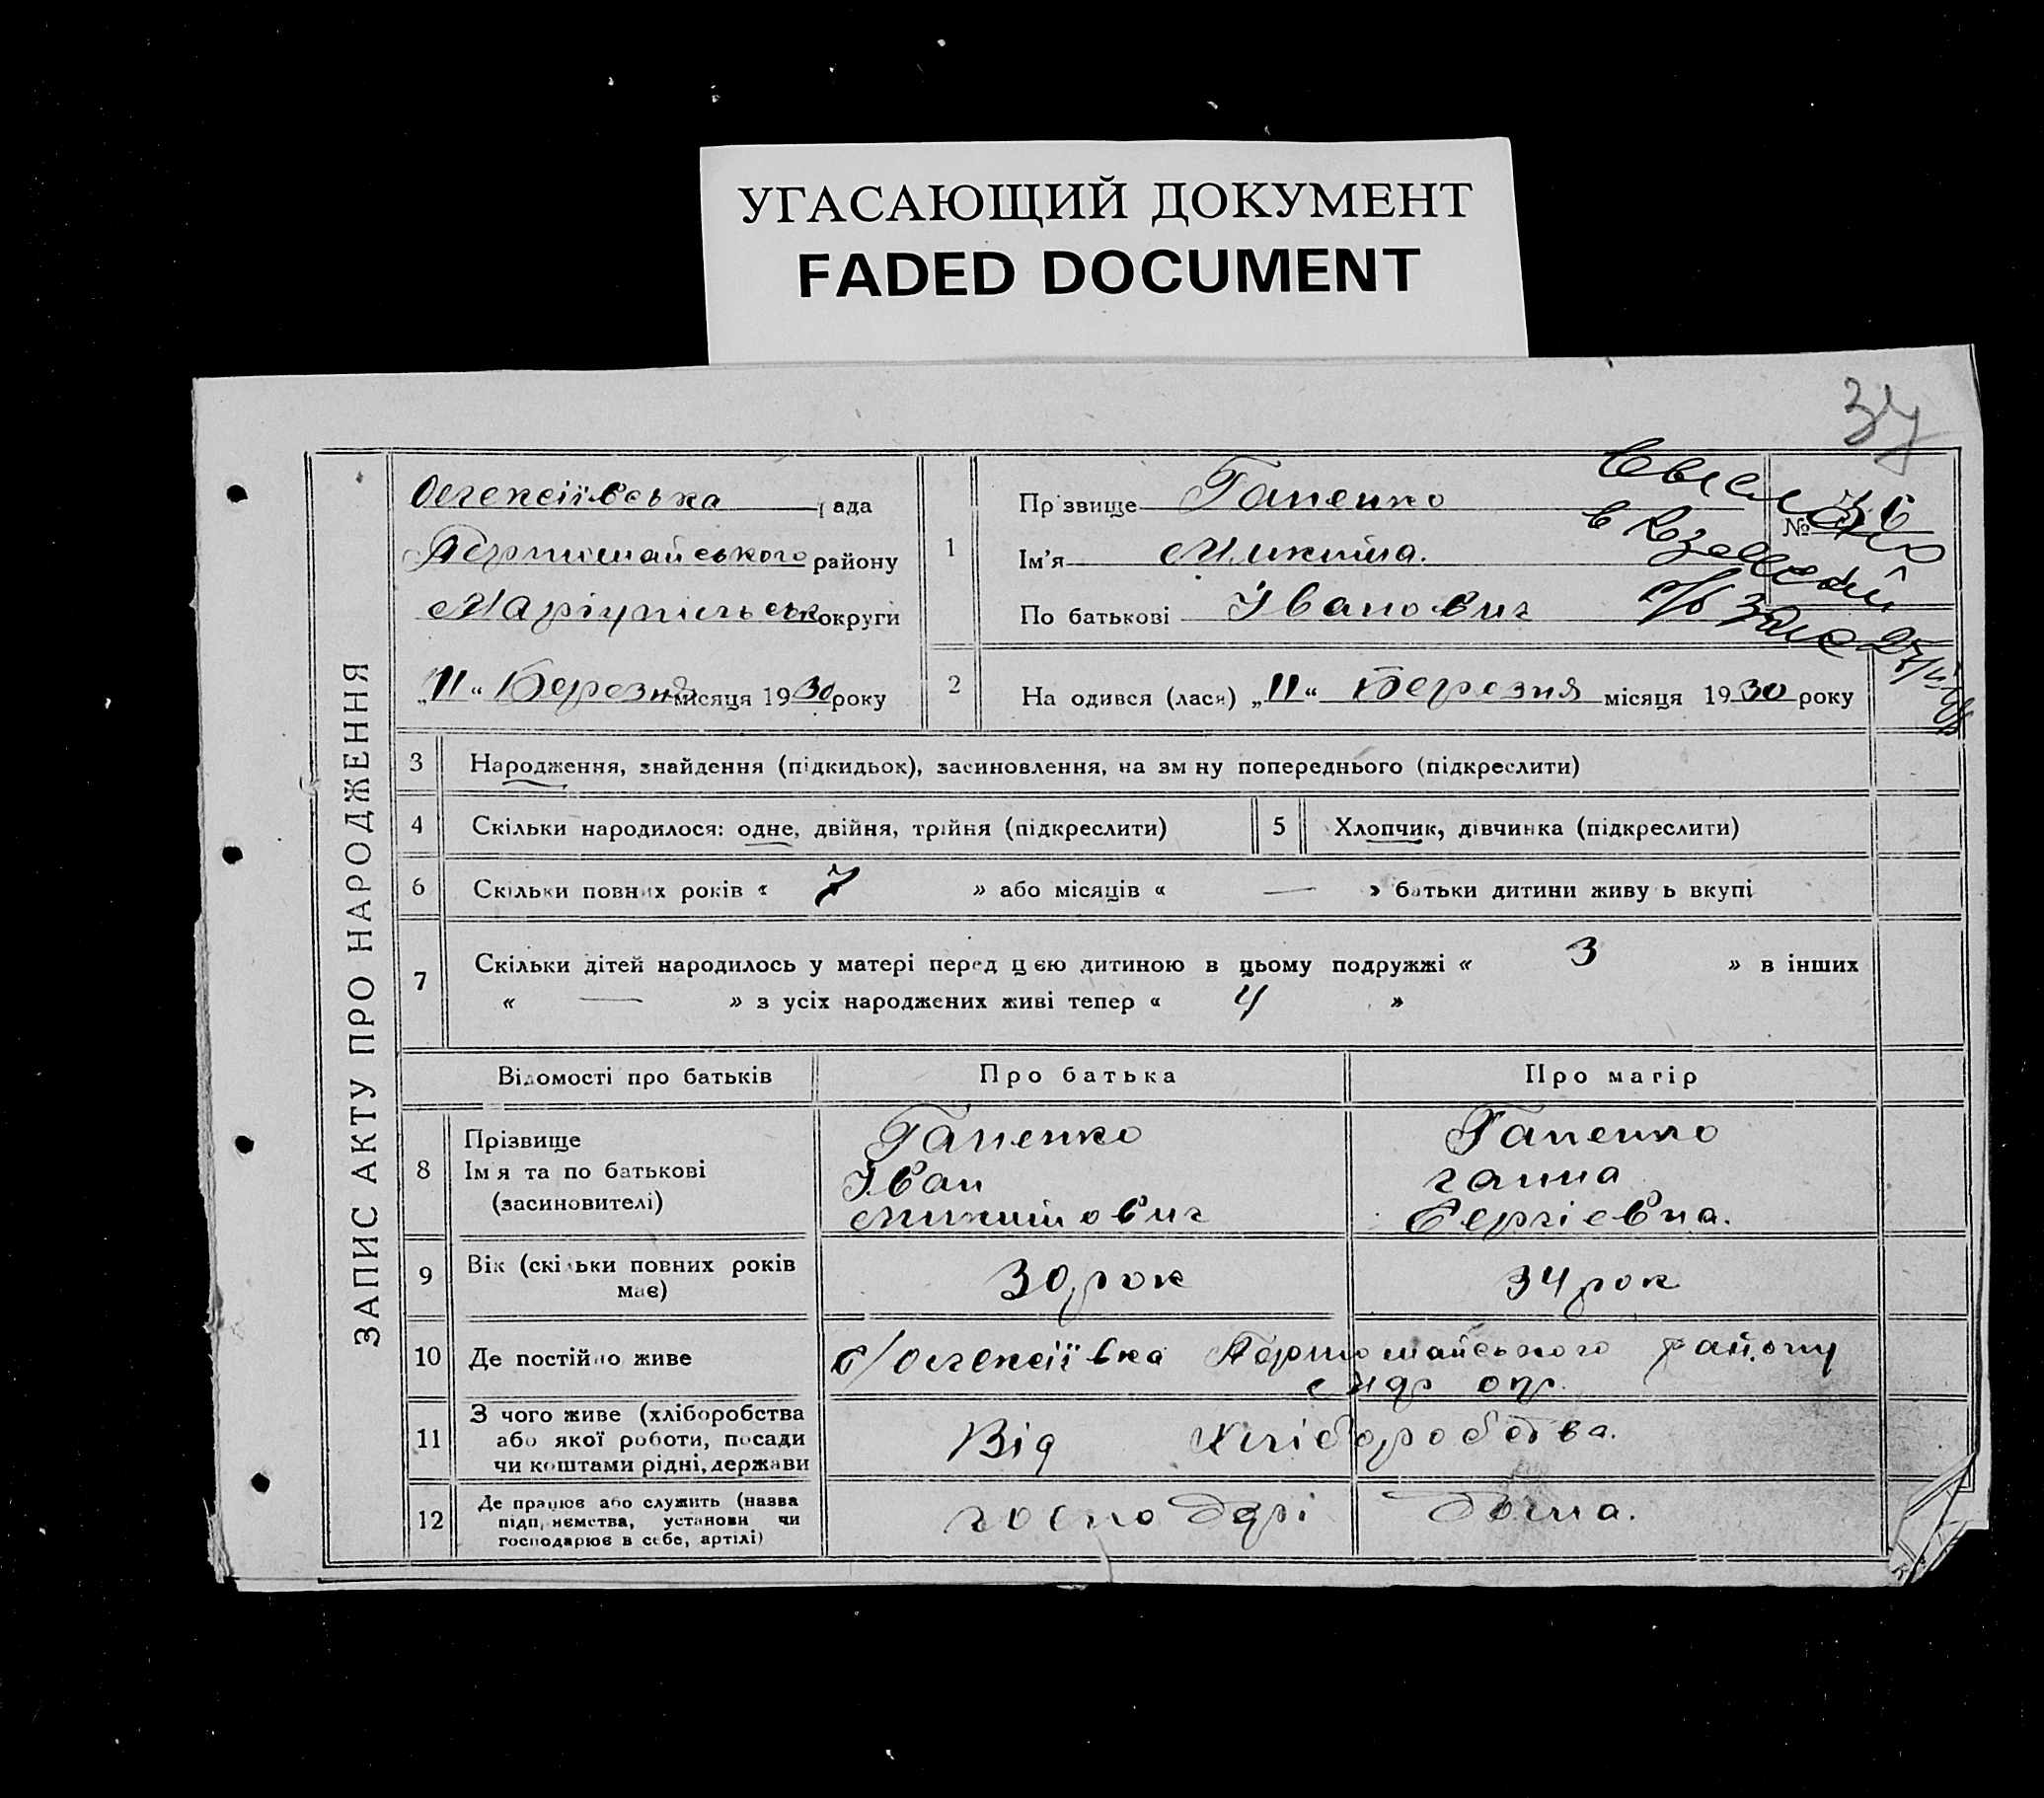 УГАСАЮЩИЙ ДОКУМЕНТ
FADED DOCUMENT
37
ЗАПИС АКТУ ПРО НАРОДЖЕННЯ
Олексіївська рада
Першомайського району
Маріупільськ округи
„11“ Березня місяця 1930 року
1
Прізвище Гапенко
Ім'я Микита.
По батькові Іванович
№ 36
2 На одився (лася) „11“ Березня місяця 1930 року
3 Народження, знайдення (підкидьок), засиновлення, на зм ну попереднього (підкреслити)
4 Скільки народилося: одне, двійня, трійня (підкреслити) 5 Хлопчик, дівчинка (підкреслити)
6 Скільки повних років « 7 » або місяців « — » батьки дитини живу ь вкупі
7 Скільки дітей народилось у матері перед цією дитиною в цьому подружжі « 3 » в інших
« — » з усіх народжених живі тепер « 4 »
Відомості про батьків Про батька Про матір
8
Прізвище Гапенко Гапенко
Ім'я та по батькові Іван ганна
(засиновителі) Микитович Сергієвна.
9 Вік (скільки повних років має) 30 рок 34 рок
10 Де постійно живе с/Олексіївка Першомайського району
мар окр.
11 З чого живе (хліборобства Від Хліборобства.
або якої роботи, посади
чи коштами рідні, держави
12 Де працює або служить (назва господарі дома.
підприємства, установи чи
господарює в себе, артілі)